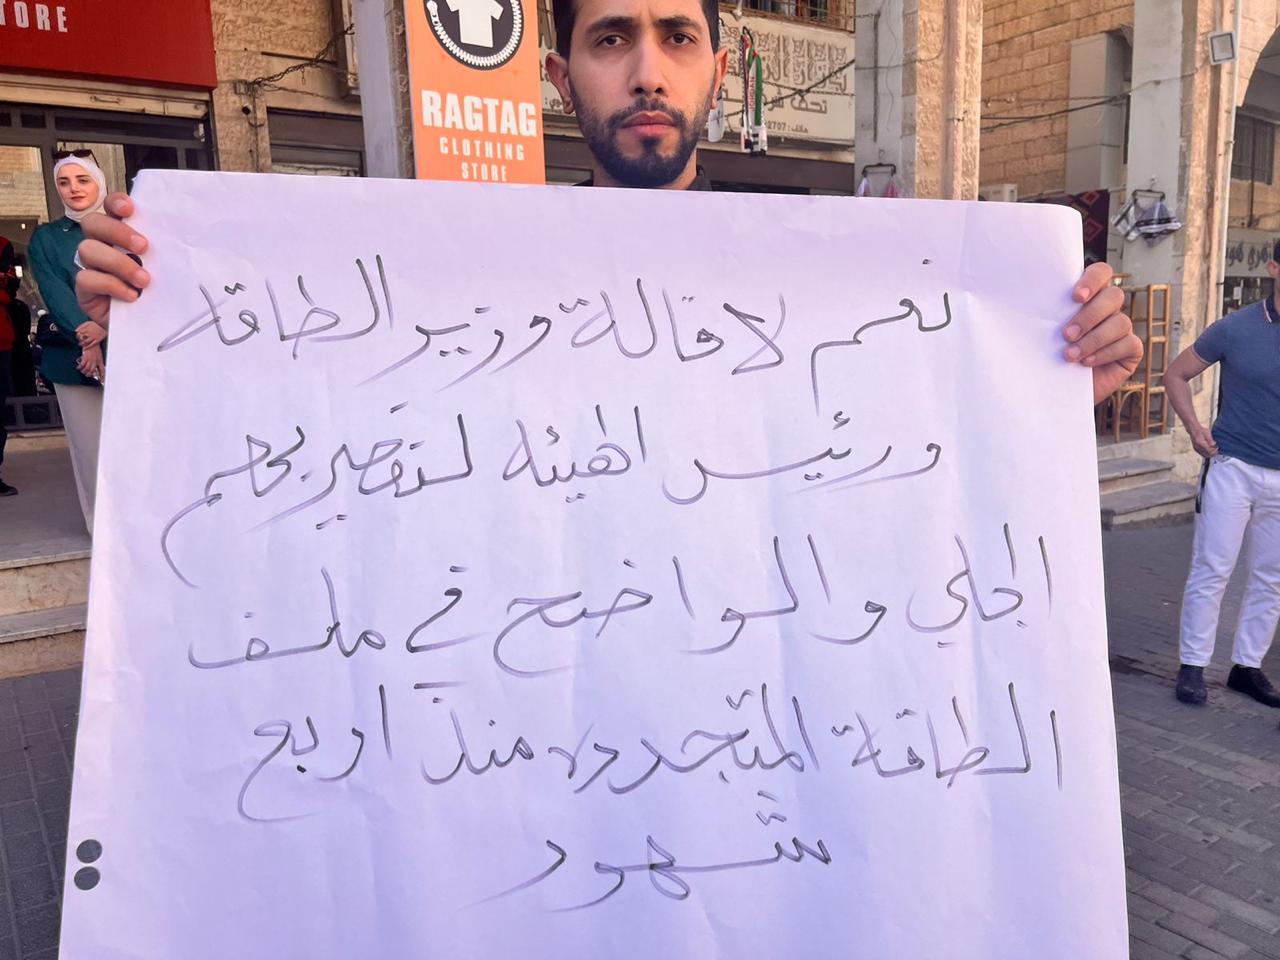 ORE
RAGTAG
CLOTHING
STORE
نعم لاقالة وزير الطاقة
ورئيس الهيئه لتقصيرهم
الجلي والواضح في ملف
الطاقة المتجدده منذ اربع
شهور